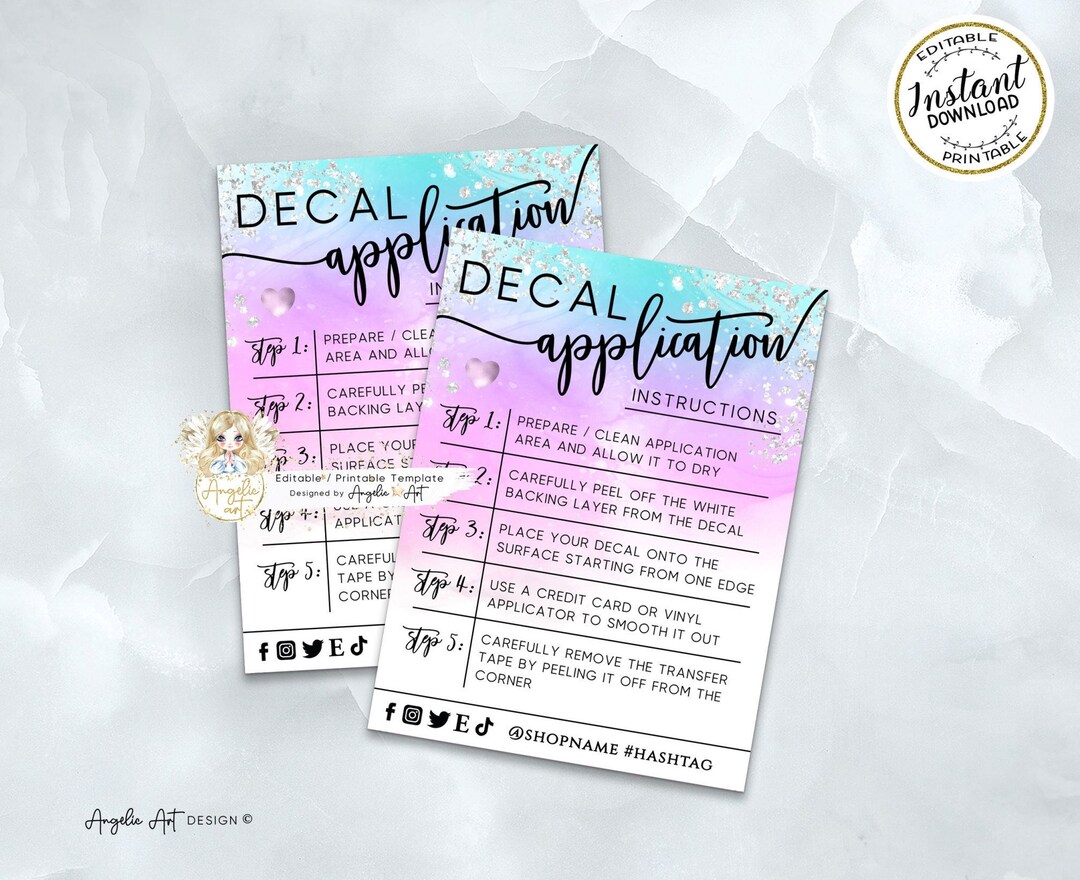 EDITABLE
Instant
DOWNLOAD
PRINTABLE
DECAL
application
STEP 1:
PREPARE / CLEA
AREA AND ALLO
STEP 2:
CAREFULLY PE
BACKING LAY
3:
PLACE YOUR
SURFACE S
STEP 4:
APPLICAT
STEP 5:
CAREFUL
TAPE BY
CORNER
E
Angelic
art
Editable / Printable Template
Designed by Angelic Art
DECAL
application
INSTRUCTIONS
step 1:
PREPARE / CLEAN APPLICATION
AREA AND ALLOW IT TO DRY
2:
CAREFULLY PEEL OFF THE WHITE
BACKING LAYER FROM THE DECAL
step 3:
PLACE YOUR DECAL ONTO THE
SURFACE STARTING FROM ONE EDGE
step 4:
USE A CREDIT CARD OR VINYL
APPLICATOR TO SMOOTH IT OUT
step 5:
CAREFULLY REMOVE THE TRANSFER
TAPE BY PEELING IT OFF FROM THE
CORNER
E @SHOPNAME #HASHTAG
Angelic Art DESIGN ©